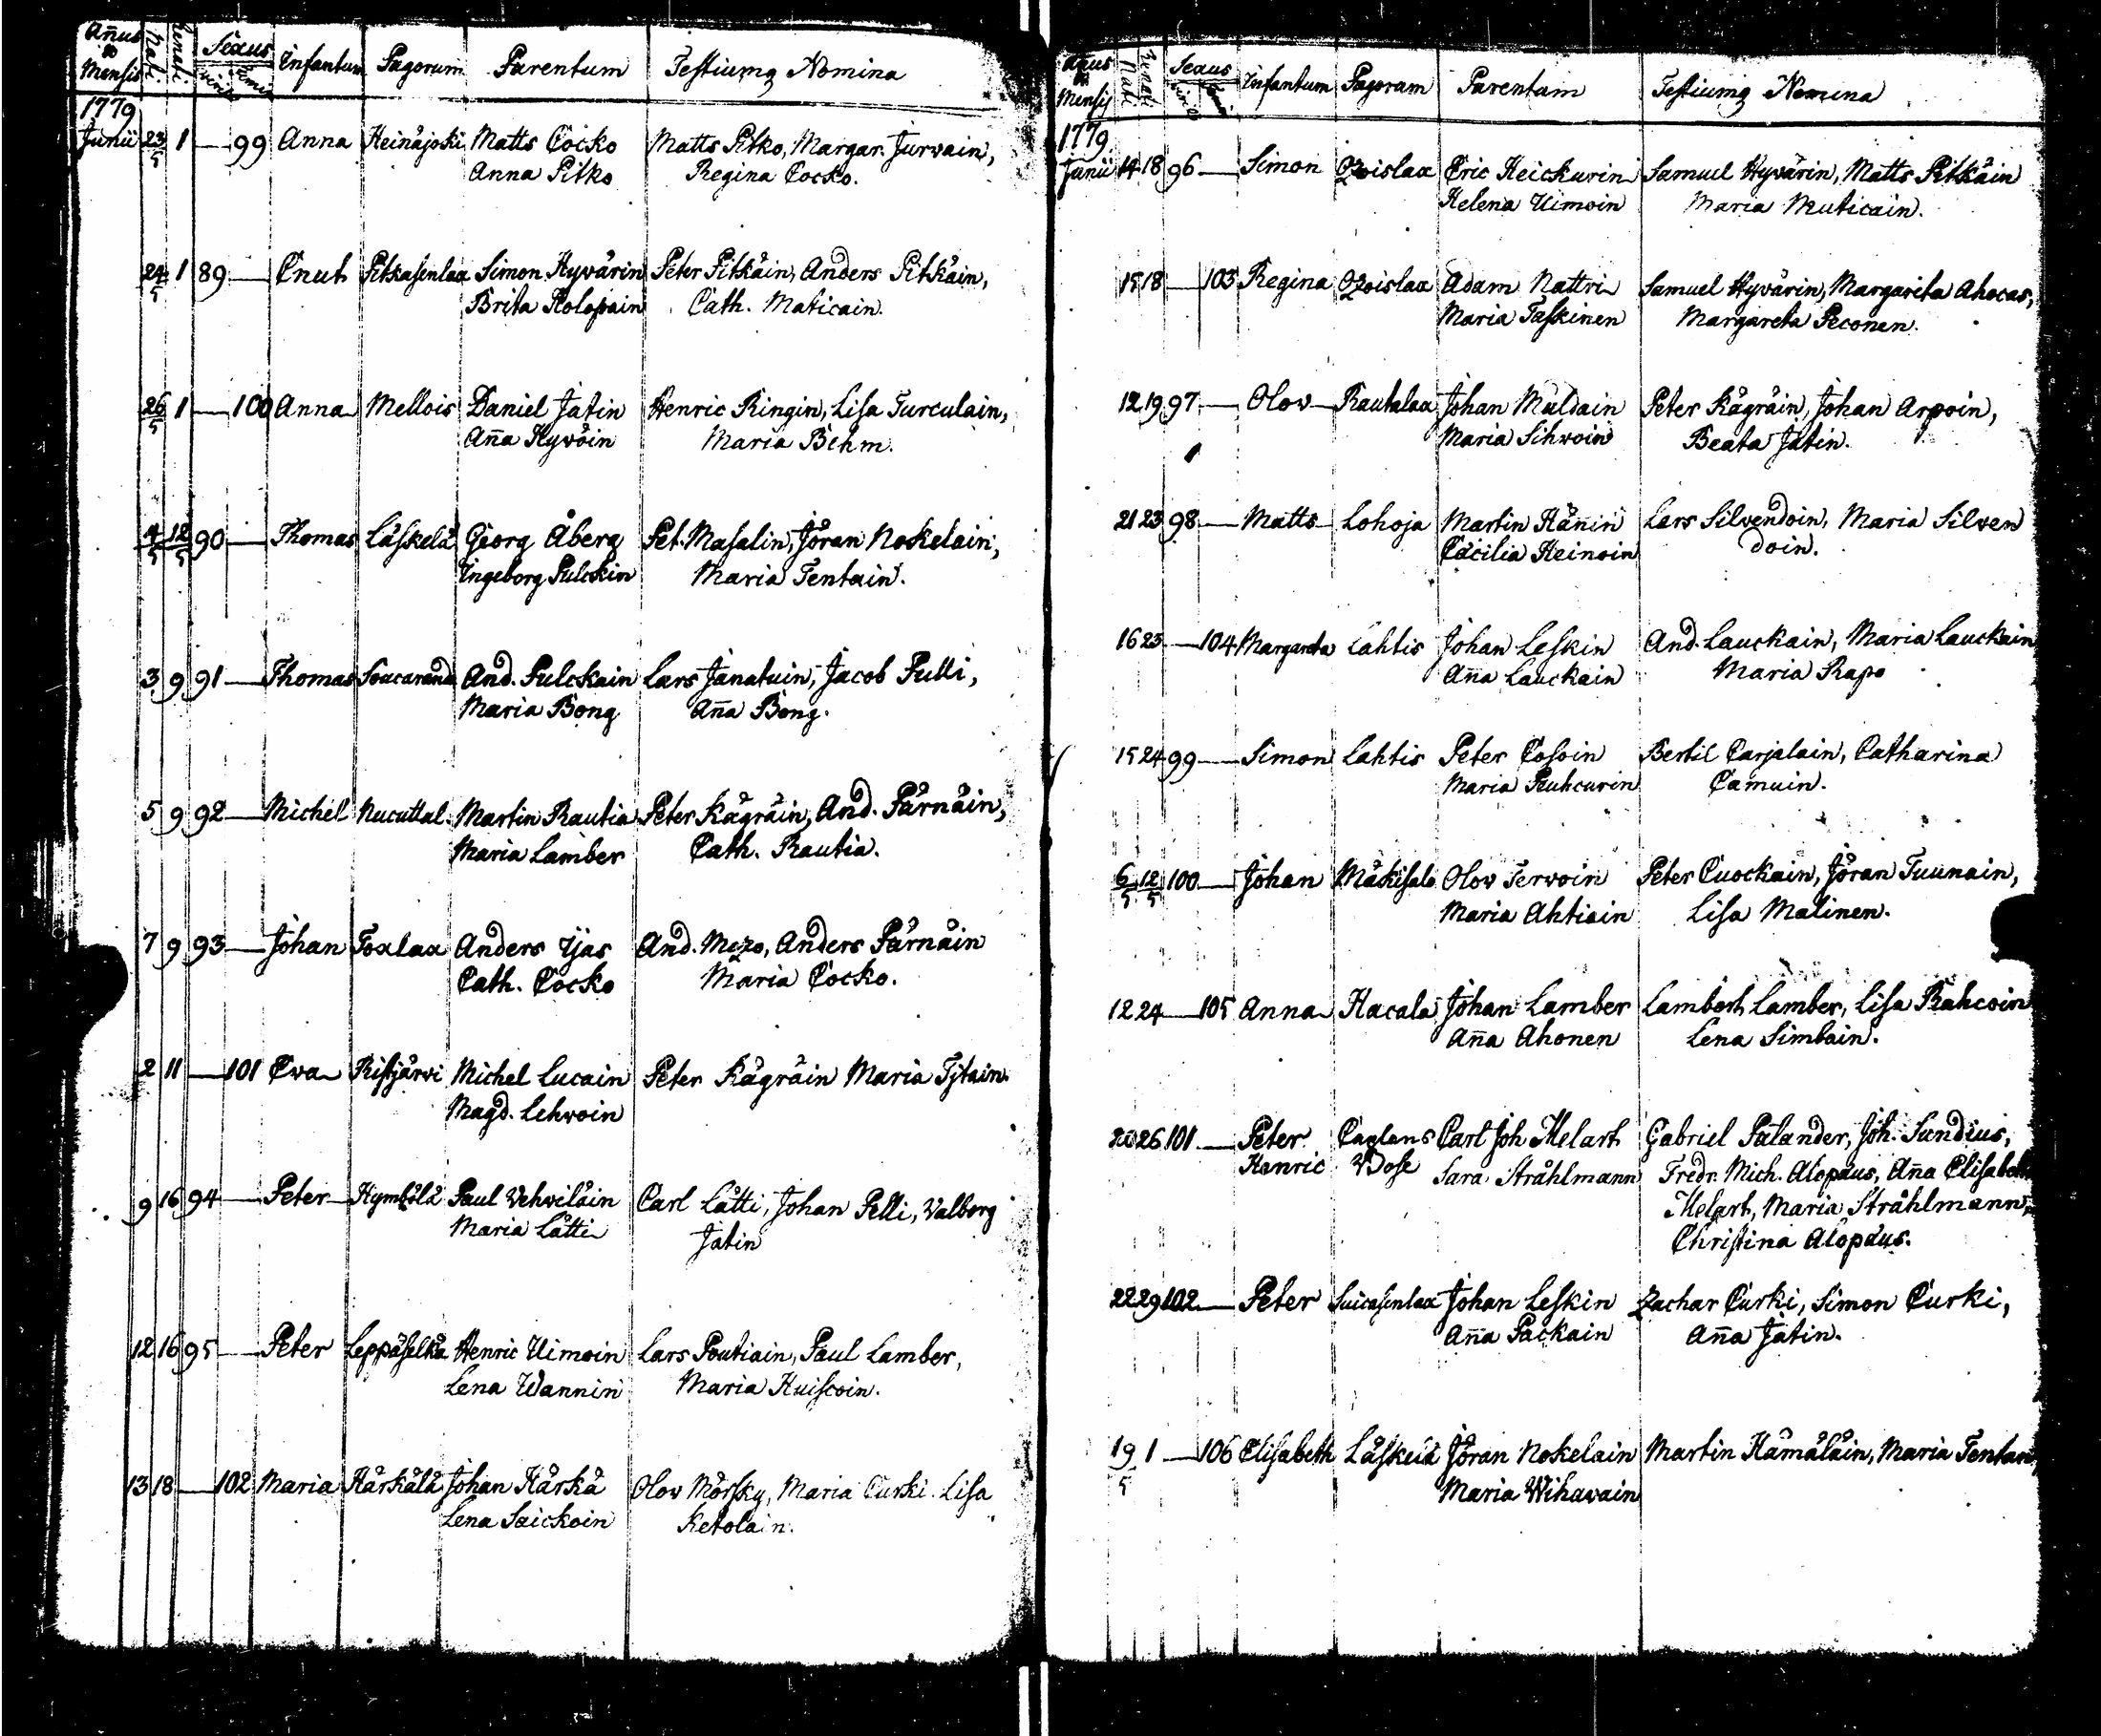 Añus & Mensis Nati Renati Sexus Viril. Femin. Infantum Pagorum Parentum Testiumq Nomina
1779
Junii 23/5 1 — 99 Anna Heinäjoki Matts Cocko Matts Pitko, Margar. Jurvain,
Anna Pitko Regina Cocko.
24/5 1 89 — Cnut Pitkasenlax Simon Hyvärin Peter Pitkäin, Anders Pitkäin,
Brita Holopain Cath. Maticain.
26/5 1 — 100 Anna Mellois Daniel Jatin Henric Ringin, Lisa Turculain,
Aña Hyvöin Maria Behm.
4/5 12/5 90 — Thomas Läskelä Georg Åberg Pet. Masalin, Jöran Nokelain,
Ingeborg Pulckin Maria Tentain.
3 9 91 — Thomas Soucaranda And. Pulckain Lars Janatuin, Jacob Pulli,
Maria Bong Aña Bong.
5 9 92 — Michel Nucuttal. Martin Rautia Peter Kägräin, And. Pärnäin,
Maria Lamber Cath. Rautia.
7 9 93 — Johan Toxlax Anders Ijas And. Mezo, Anders Pärnäin
Cath. Cocko Maria Cocko.
2 11 — 101 Eva Ristjärvi Michel Lucain Peter Kägräin Maria Tytain.
Magd. Lehvoin
9 16 94 — Peter Hymbölä Paul Vehviläin Carl Lätti, Johan Pelli, Valborg
Maria Lätti Jatin
12 16 95 — Peter Leppäselkä Henric Uimoin Lars Poutiain, Paul Lamber,
Lena Wannin Maria Huiscoin.
13 18 — 102 Maria Härkälä Johan Härkä Olov Mörsky, Maria Curki. Lisa
Lena Saickoin Ketolain.
Añus & Mensis Nati Renati Sexus Viril. Femin. Infantum Pagoram Parentam Testiumq Nomina
1779.
Junii 14 18 96 — Simon Qvoislax Eric Heickurin Samuel Hyvärin, Matts Pitkäin
Helena Uimoin Maria Muticain.
15 18 — 103 Regina Qvoislax Adam Nattri Samuel Hyvärin, Margarita Ahocas,
Maria Taskinen Margareta Peconen.
12 19 97 — Olov Rautalax Johan Muldain Peter Kägräin, Johan Arpoin,
Maria Sihvoin Beata Jätin.
21 23 98 — Matts Lohoja Martin Häñin Lars Silvendoin, Maria Silven
Cäcilia Heinoin doin.
16 23 — 104 Margareta Lahtis Johan Leskin And. Lauckain, Maria Lauckain
Aña Lauckain Maria Rapo
15 24 99 — Simon Lahtis Peter Cosoin Bertil Carjalain, Catharina
Maria Ruhcurin Camuin.
6/5 12/5 100 — Johan Mäkisalo Olov Tervoin Peter Cuockain, Jöran Tuunain,
Maria Ahtiain Lisa Malinen.
12 24 — 105 Anna Hacala Johan Lamber Lambert Lamber, Lisa Rahcoin
Aña Ahonen Lena Simbain.
20 26 101 — Peter Caplans Carl Joh Melart Gabriel Palander, Joh. Sundius,
Henric Bose Sara Stråhlmann Fredr. Mich. Alopäus, Aña Elisabeth
Melart, Maria Stråhlmann,
Christina Alopäus.
22 29 102 — Peter Suicasenlax Johan Leskin Zachar Curki, Simon Curki,
Aña Packain Aña Jätin.
19/5 1 — 106 Elisabeth Läskelä Jöran Nokelain Martin Hämäläin, Maria Tentain
Maria Wihavain